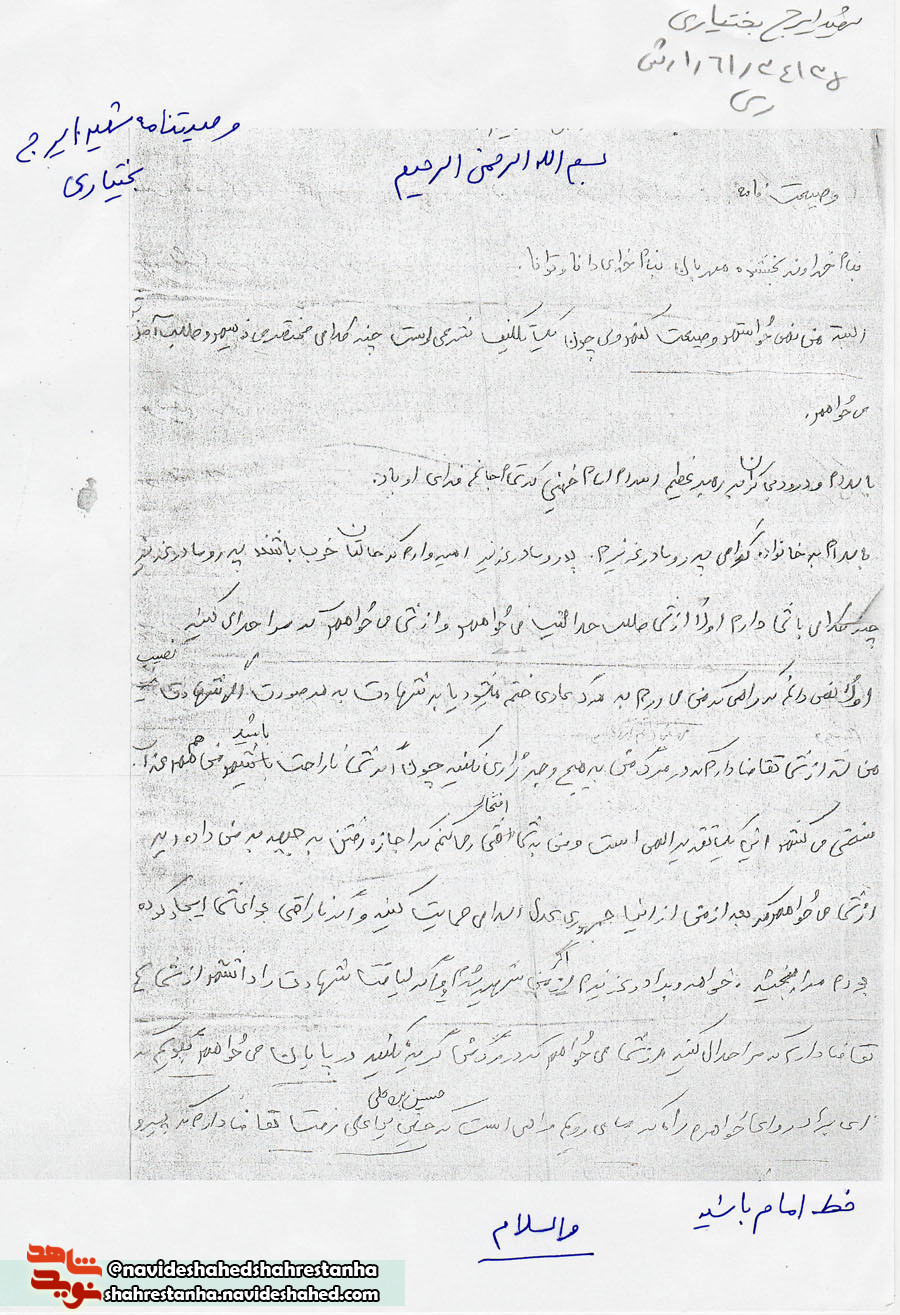 شهید ایرج بختیاری
ری
وصیتنامه شهید ایرج
بختیاری
بسم الله الرحمن الرحیم
وصیت نامه
بنام خداوند بخشنده مهربان بنام خدای دانا و توانا.
البته من نمی خواستم وصیت کنم ولی چون یک تکلیف شرعی است چند کلامی مختصر می نویسم و طلب آمرزش
می خواهم.
با سلام و درود بی کران به رهبر عظیم اسلام امام خمینی که تمام جانم فدای او باد.
با سلام به خانواده گرامی پدر و مادر عزیزم. پدر و مادر عزیز امیدوارم که حالتان خوب باشد پدر و مادر عزیزم
چند کلامی با شما دارم اولاً از شما طلب حلالیت می خواهم و از شما می خواهم که مرا حلال کنید
اولاً نمی دانم که راهی که من می روم به مرگ عادی ختم میشود یا به شهادت به هر صورت اگر شهادت نصیب
من شد از شما تقاضا دارم که در مرگ من به هیچ وجه زاری نکنید چون اگر شما ناراحت باشید من هم
می کشم این یک تقدیر الهی است و من به شما افتخار می کنم که اجازه رفتن به جبهه به من داده اید
از شما می خواهم که بعد از من از جمهوری اسلامی حمایت کنید و اگر ناراحتی برای شما ایجاد کرده
بودم مرا ببخشید. خواهر و برادر عزیزم اگر من شهید شدم و لیاقت شهادت را داشتم از شما هم
تقاضا دارم که مرا حلال کنید از شما می خواهم که در مرگ من گریه نکنید در پایان می خواهم بگویم که
ای برادر و ای خواهرم راهی که ما می رویم راهی است که حسین بن علی رفت تقاضا دارم که پیرو
خط امام باشید
والسلام
شاهد
نوید
@navideshahedshahrestanha
shahrestanha.navideshahed.com